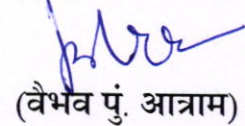 (वैभव पुं. आत्राम)